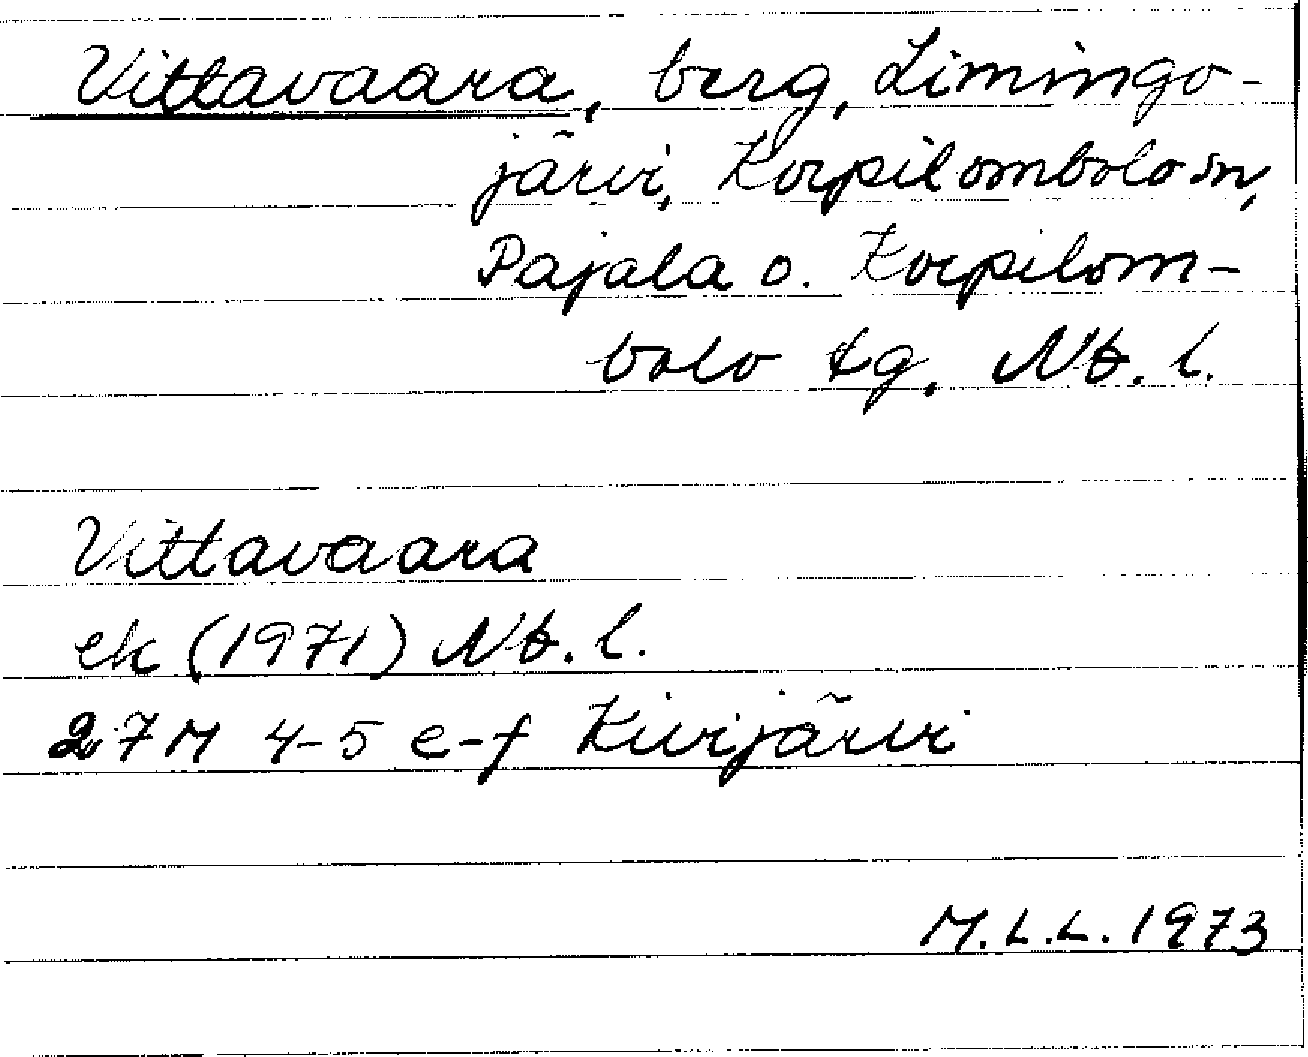 Vittavaara, berg, Limingo-
järvi, Korpilombolo sn,
Pajala o. Korpilom-
bolo tg, Nb. l.
Vittavaara
ek (1971) Nb. l.
27M 4-5 e-f Kivijärvi
M.L.L. 1973